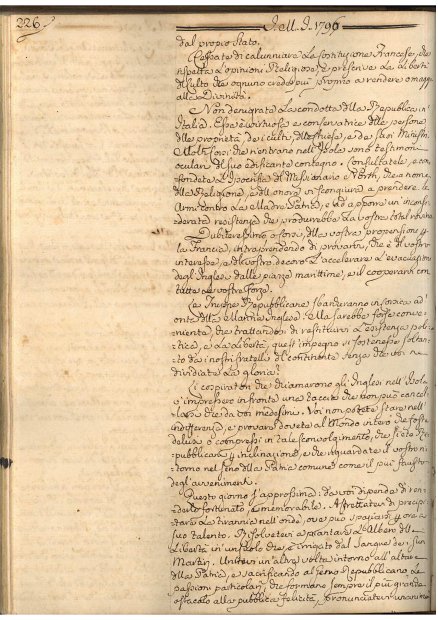 226
dal propio Stato.
Cessate di calunniare La Costituzione Francese, che
rispetta L'opinioni Religiose, e preserva La Libertà
di Culto che ognuno crede più proprio a rendere omaggi
alla Divinità.
Non denigrate La condotta della Repubblica in
Italia. Essa è virtuosa e conservatrice delle persone
delle proprietà, dei culti, delle Chiese, e de suoi Ministri
Molti Corsi che rientrano nell'Isola sono testimonj
oculari del suo edificante contegno. Consultatele, e con-
fondete L'Ipocrisia del Missionario North, che a nome
della Religione, e dell'onore vi scongiura a prendere le
Armi contro La Madre Patria, e ad apporre un'inconsi-
derata resistenza che produrrebbe La vostra total rovina
Dubiteressimo o Corsi, della vostra propensione
La Francia, intraprendendo di provarvi, che è del vostro
interesse, e del vostro decoro L'accelerare L'evacuazione
degl'Inglesi dalle piazze marittime, e il cooperarvi con
tutte le vostre forze.
Le Truppe Repubblicane sbarcaranno in Corsica ad
onta della Marina Inglese. Ma sarebbe forse conve-
niente, che trattandosi di restituirvi L'esistenza poli-
tica, e La Libertà, quest'impegno si sostenesse soltan-
to da i nostri fratelli del continente senza che voi ne
dividiate La gloria?
I cospiratori che chiamarono gli Inglesi nell'Isola
v'impressero in fronte una taccia che non può cancel-
larsi che da voi medesimi. Voi non potete stare nell'
indifferenza, e provare dovete al Mondo intero che foste
delusi o compressi in tale sconvolgimento, che siete Re-
pubblicani inclinazione, e che riguardate il vostro ri-
torno nel seno della Patria comune come il più fausto
degl'avvenimenti.
Questo giorno s'approssima: da voi dipende di ren-
derlo fortunato, e memorabile. Affrettatevi di precipi-
tare La tirannia nell'onde, ove può spaziarsi ora a
suo talento. Risolvetevi a piantare L'Albero della
Libertà in un suolo che è irrigato dal Sangue de i suoi
Martiri. Unitevi un'altra volta intorno all'altare
della Patria, e sacrificando al genio Repubblicano Le
passioni particolari, che formano sempre il più grande
ostacolo alla pubblica felicità, pronunciate unanimi